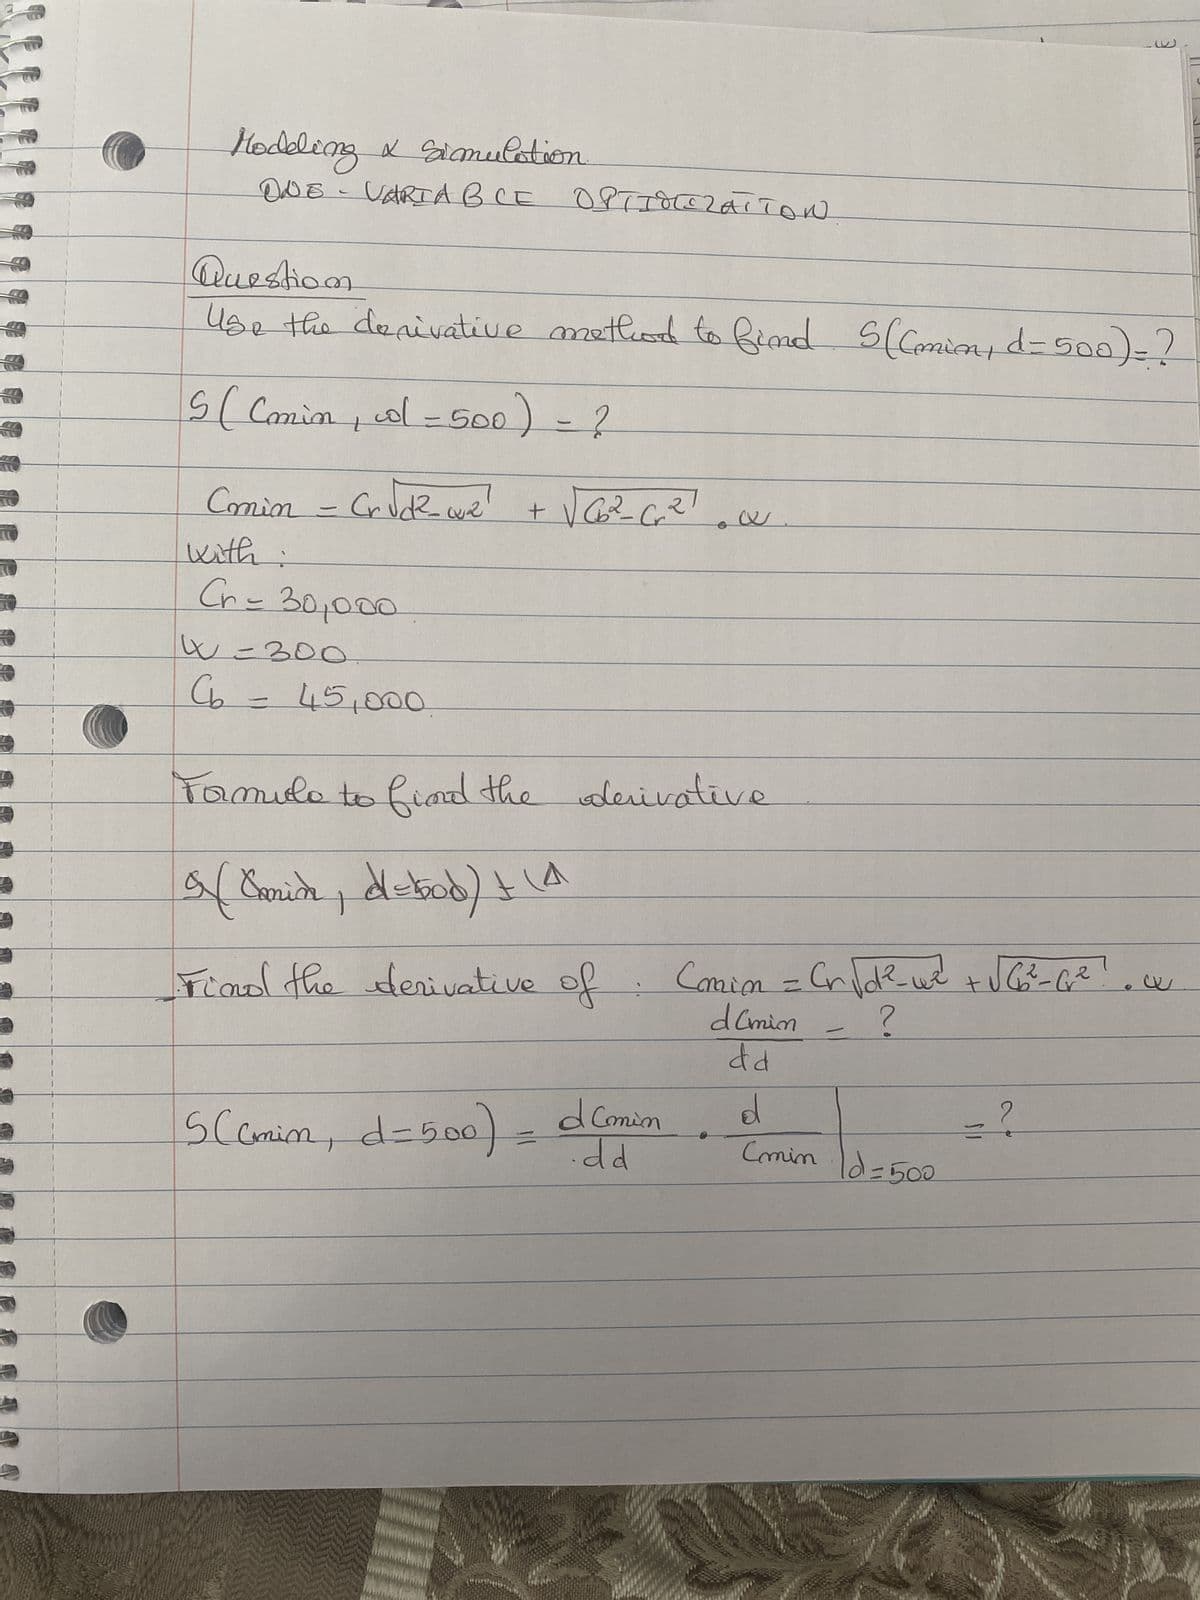 Modeling & Simulation
ONE - VARIABLE OPTIMIZATION
Question
Use the derivative method to find S(Cmin, d=500)=?
S(Cmin, d=500) = ?
Cmin = Cr√d²-w² + √Cb²-Cr² . w
with :
Cr = 30,000
W = 300
Cb = 45,000
Formula to find the derivative
S(Cmin, d=500)
Find the derivative of : Cmin = Cr√d²-w² + √Cb²-Cr² . w
dCmin/dd = ?
S(Cmin, d=500) = dCmin/dd . d/Cmin |d=500 = ?